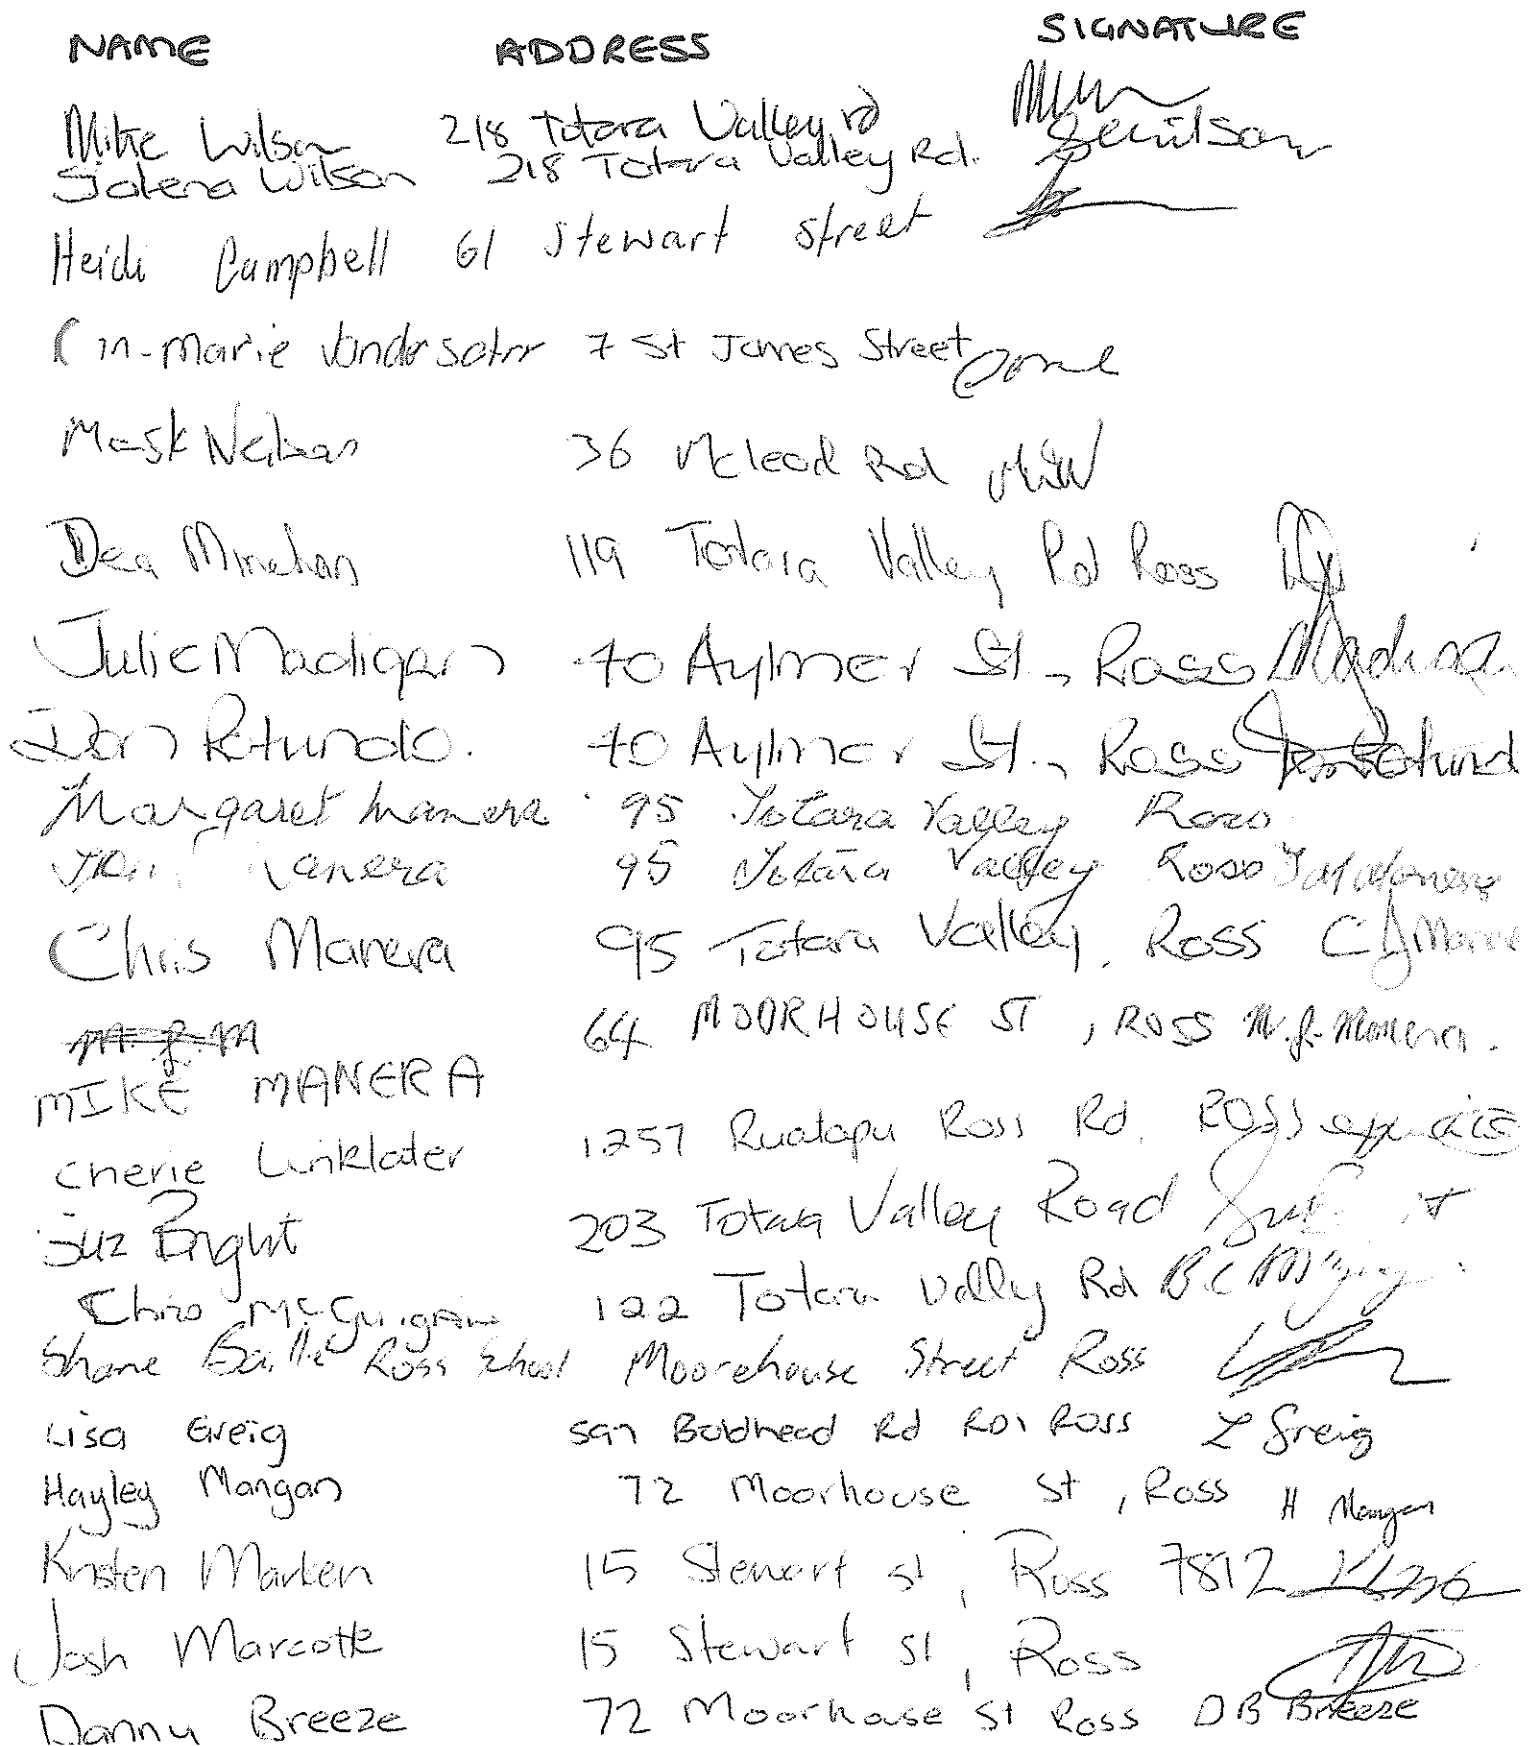 NAME ADDRESS SIGNATURE
Mike Wilson 218 Totara Valley rd
Jolena Wilson 218 Totara Valley Rd. Jewilson
Heidi Campbell 61 Stewart Street
7 St James Street
Mark Neilson 36 Mcleod Rd
Dea Minehan 119 Totara Valley Rd Ross
Julie Madigan 40 Aylmer St., Ross Madigan
Don Rotundo. 40 Aylmer St., Ross
Margaret Manera 95 Totara Valley Ross
Manera 95 Totara Valley Ross
Chris Manera 95 Totara Valley, Ross
64 MOORHOUSE ST, ROSS M.J. Manera.
MIKE MANERA
Cherie Linklater 1257 Ruatapu Ross Rd. Ross
Suz Bright 203 Totara Valley Road
McGuigan 122 Totara Valley Rd
Shane Ross School Moorehouse Street Ross
Lisa Greig 597 Boldhead Rd RD1 Ross L Greig
Hayley Mangan 72 Moorhouse St, Ross H Mangan
Kristen Marken 15 Stewart St, Ross 7812
Josh Marcotte 15 Stewart St, Ross
Danny Breeze 72 Moorhouse St Ross D B Breeze